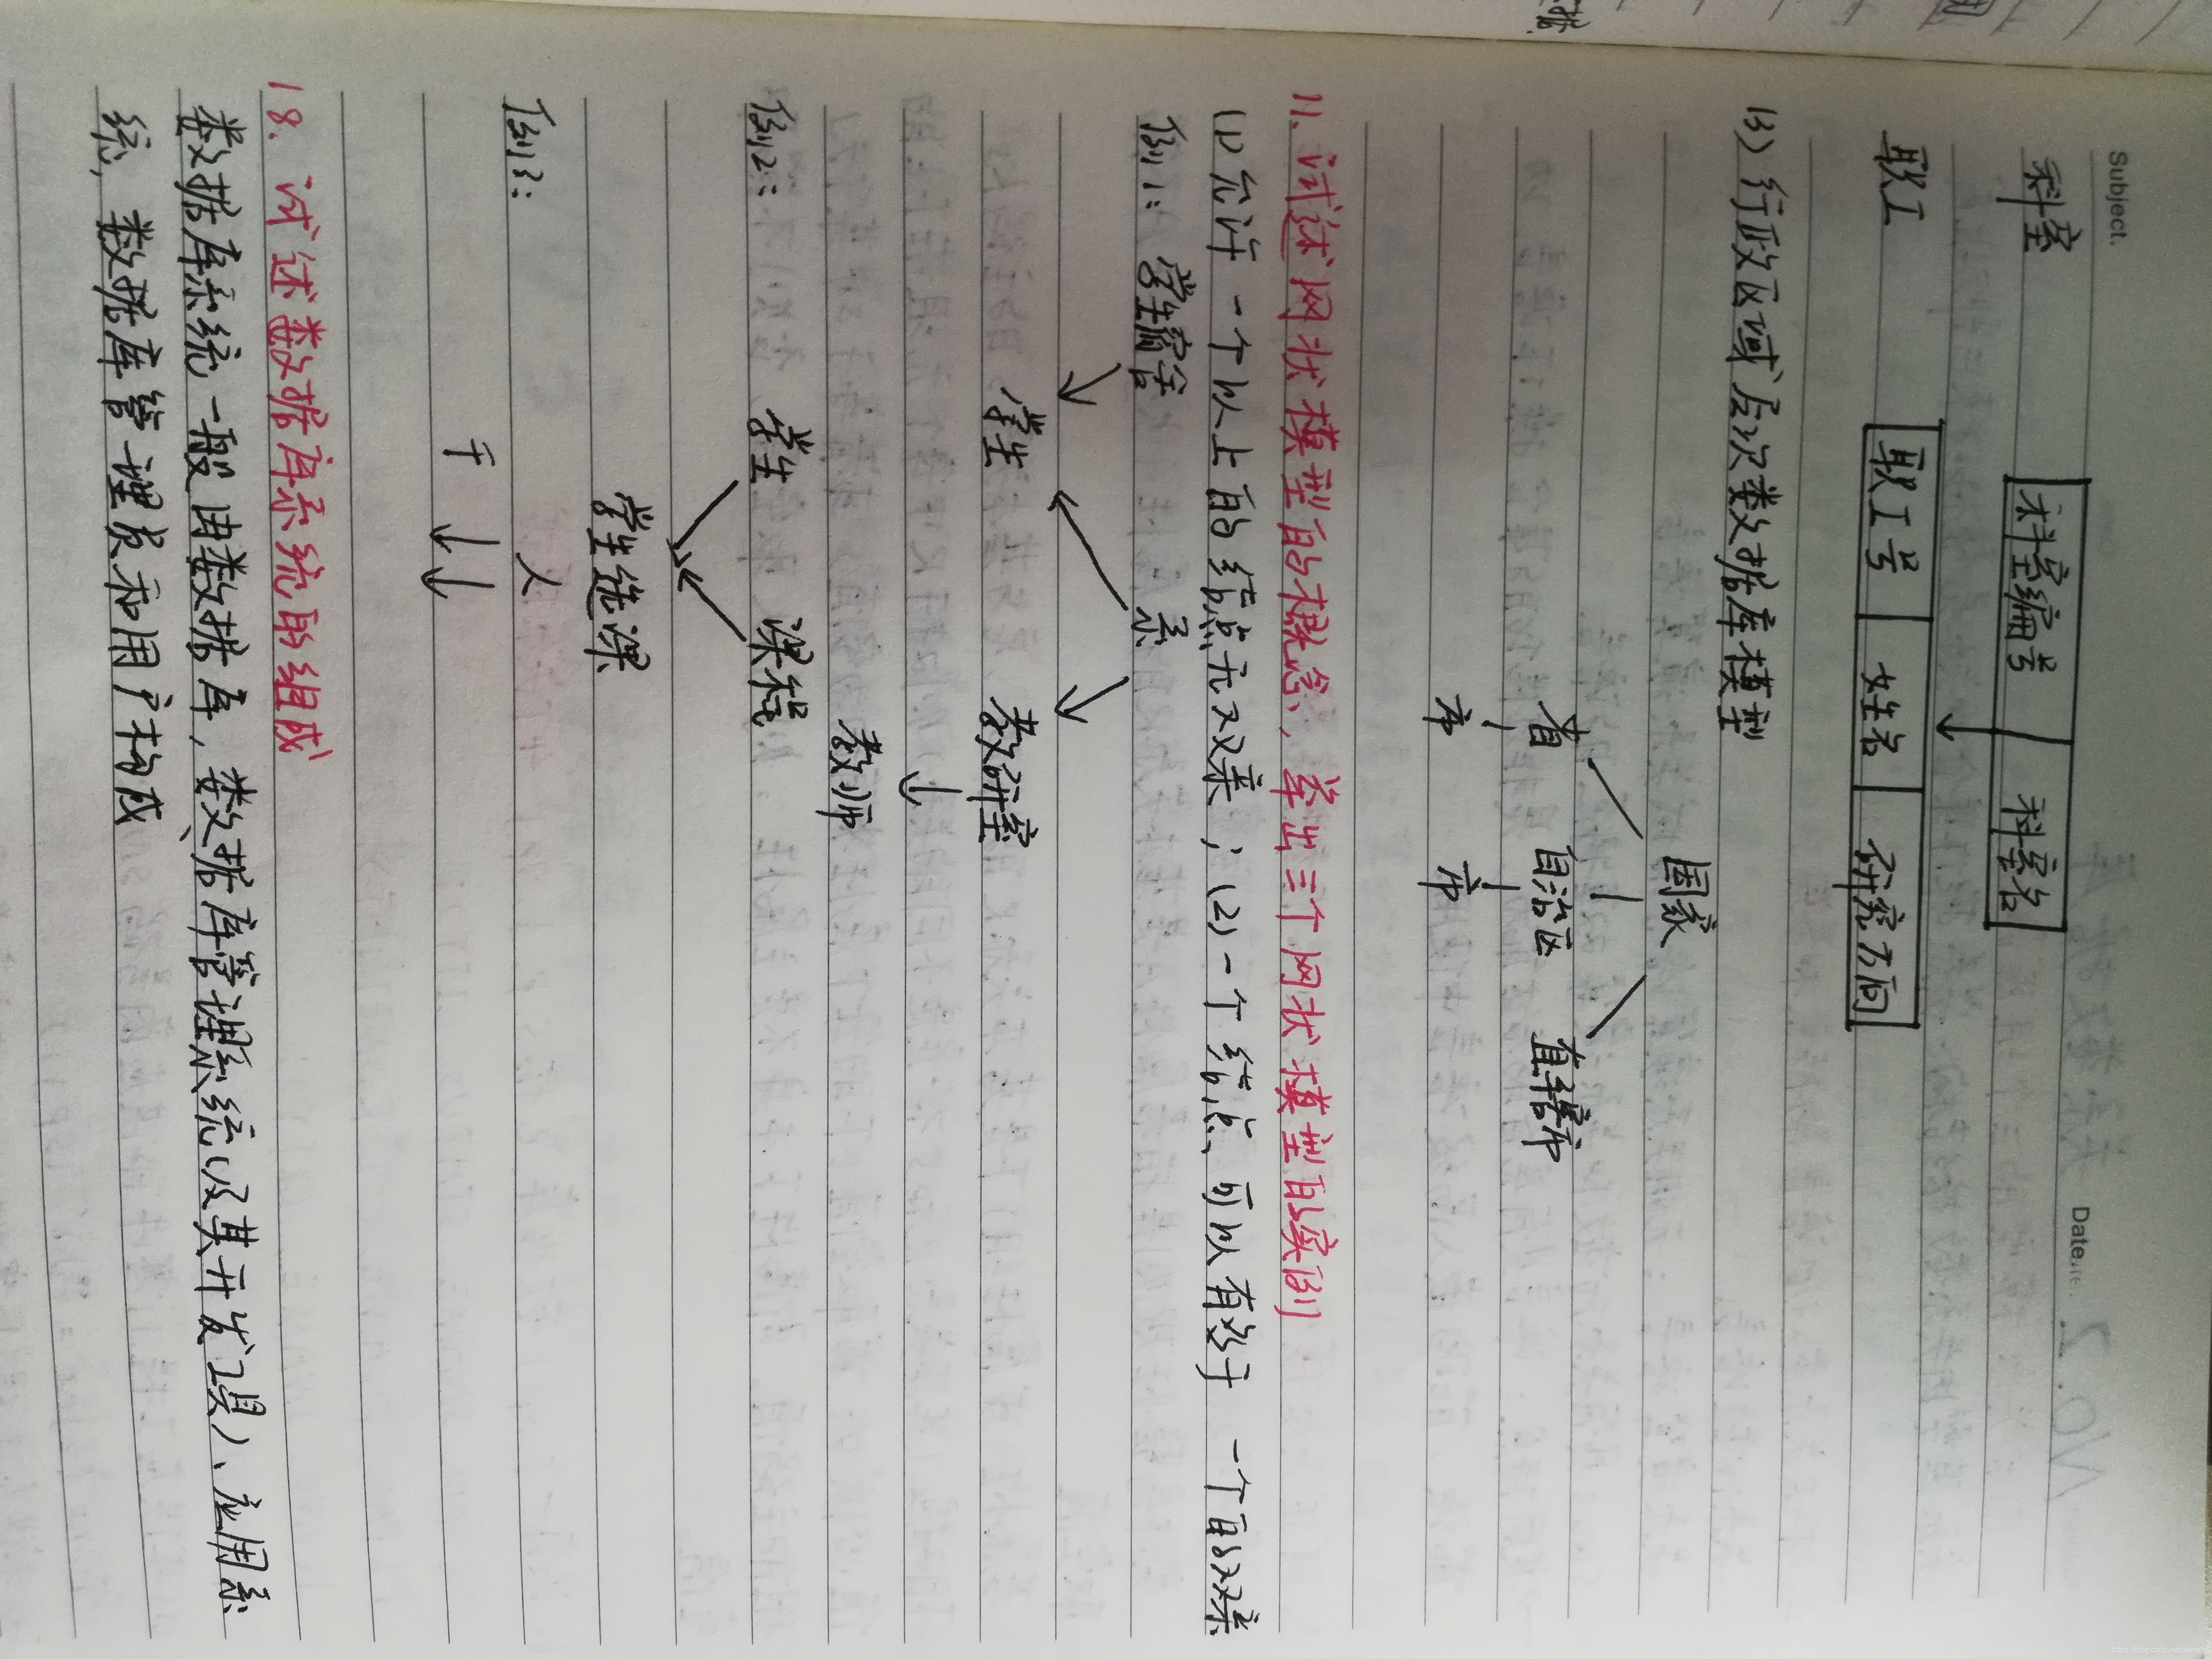 Subject.
Date.
No.
科室 科室编号 科室名
职工 职工号 姓名 研究方向
(3) 行政区域层次数据库模型
国家
省 自治区 直辖市
市 市
11、试述网状模型的概念，举出三个网状模型的实例
(1) 允许一个以上的结点无双亲；(2) 一个结点可以有多于一个的双亲
例1: 学生宿舍 系
学生 教研室
教师
例2: 学生 课程
学生选课
例3: 人
干
18. 试述数据库系统的组成
数据库系统一般由数据库，数据库管理系统(及其开发工具)、应用系
统，数据库管理员和用户构成
https://blog.csdn.net/